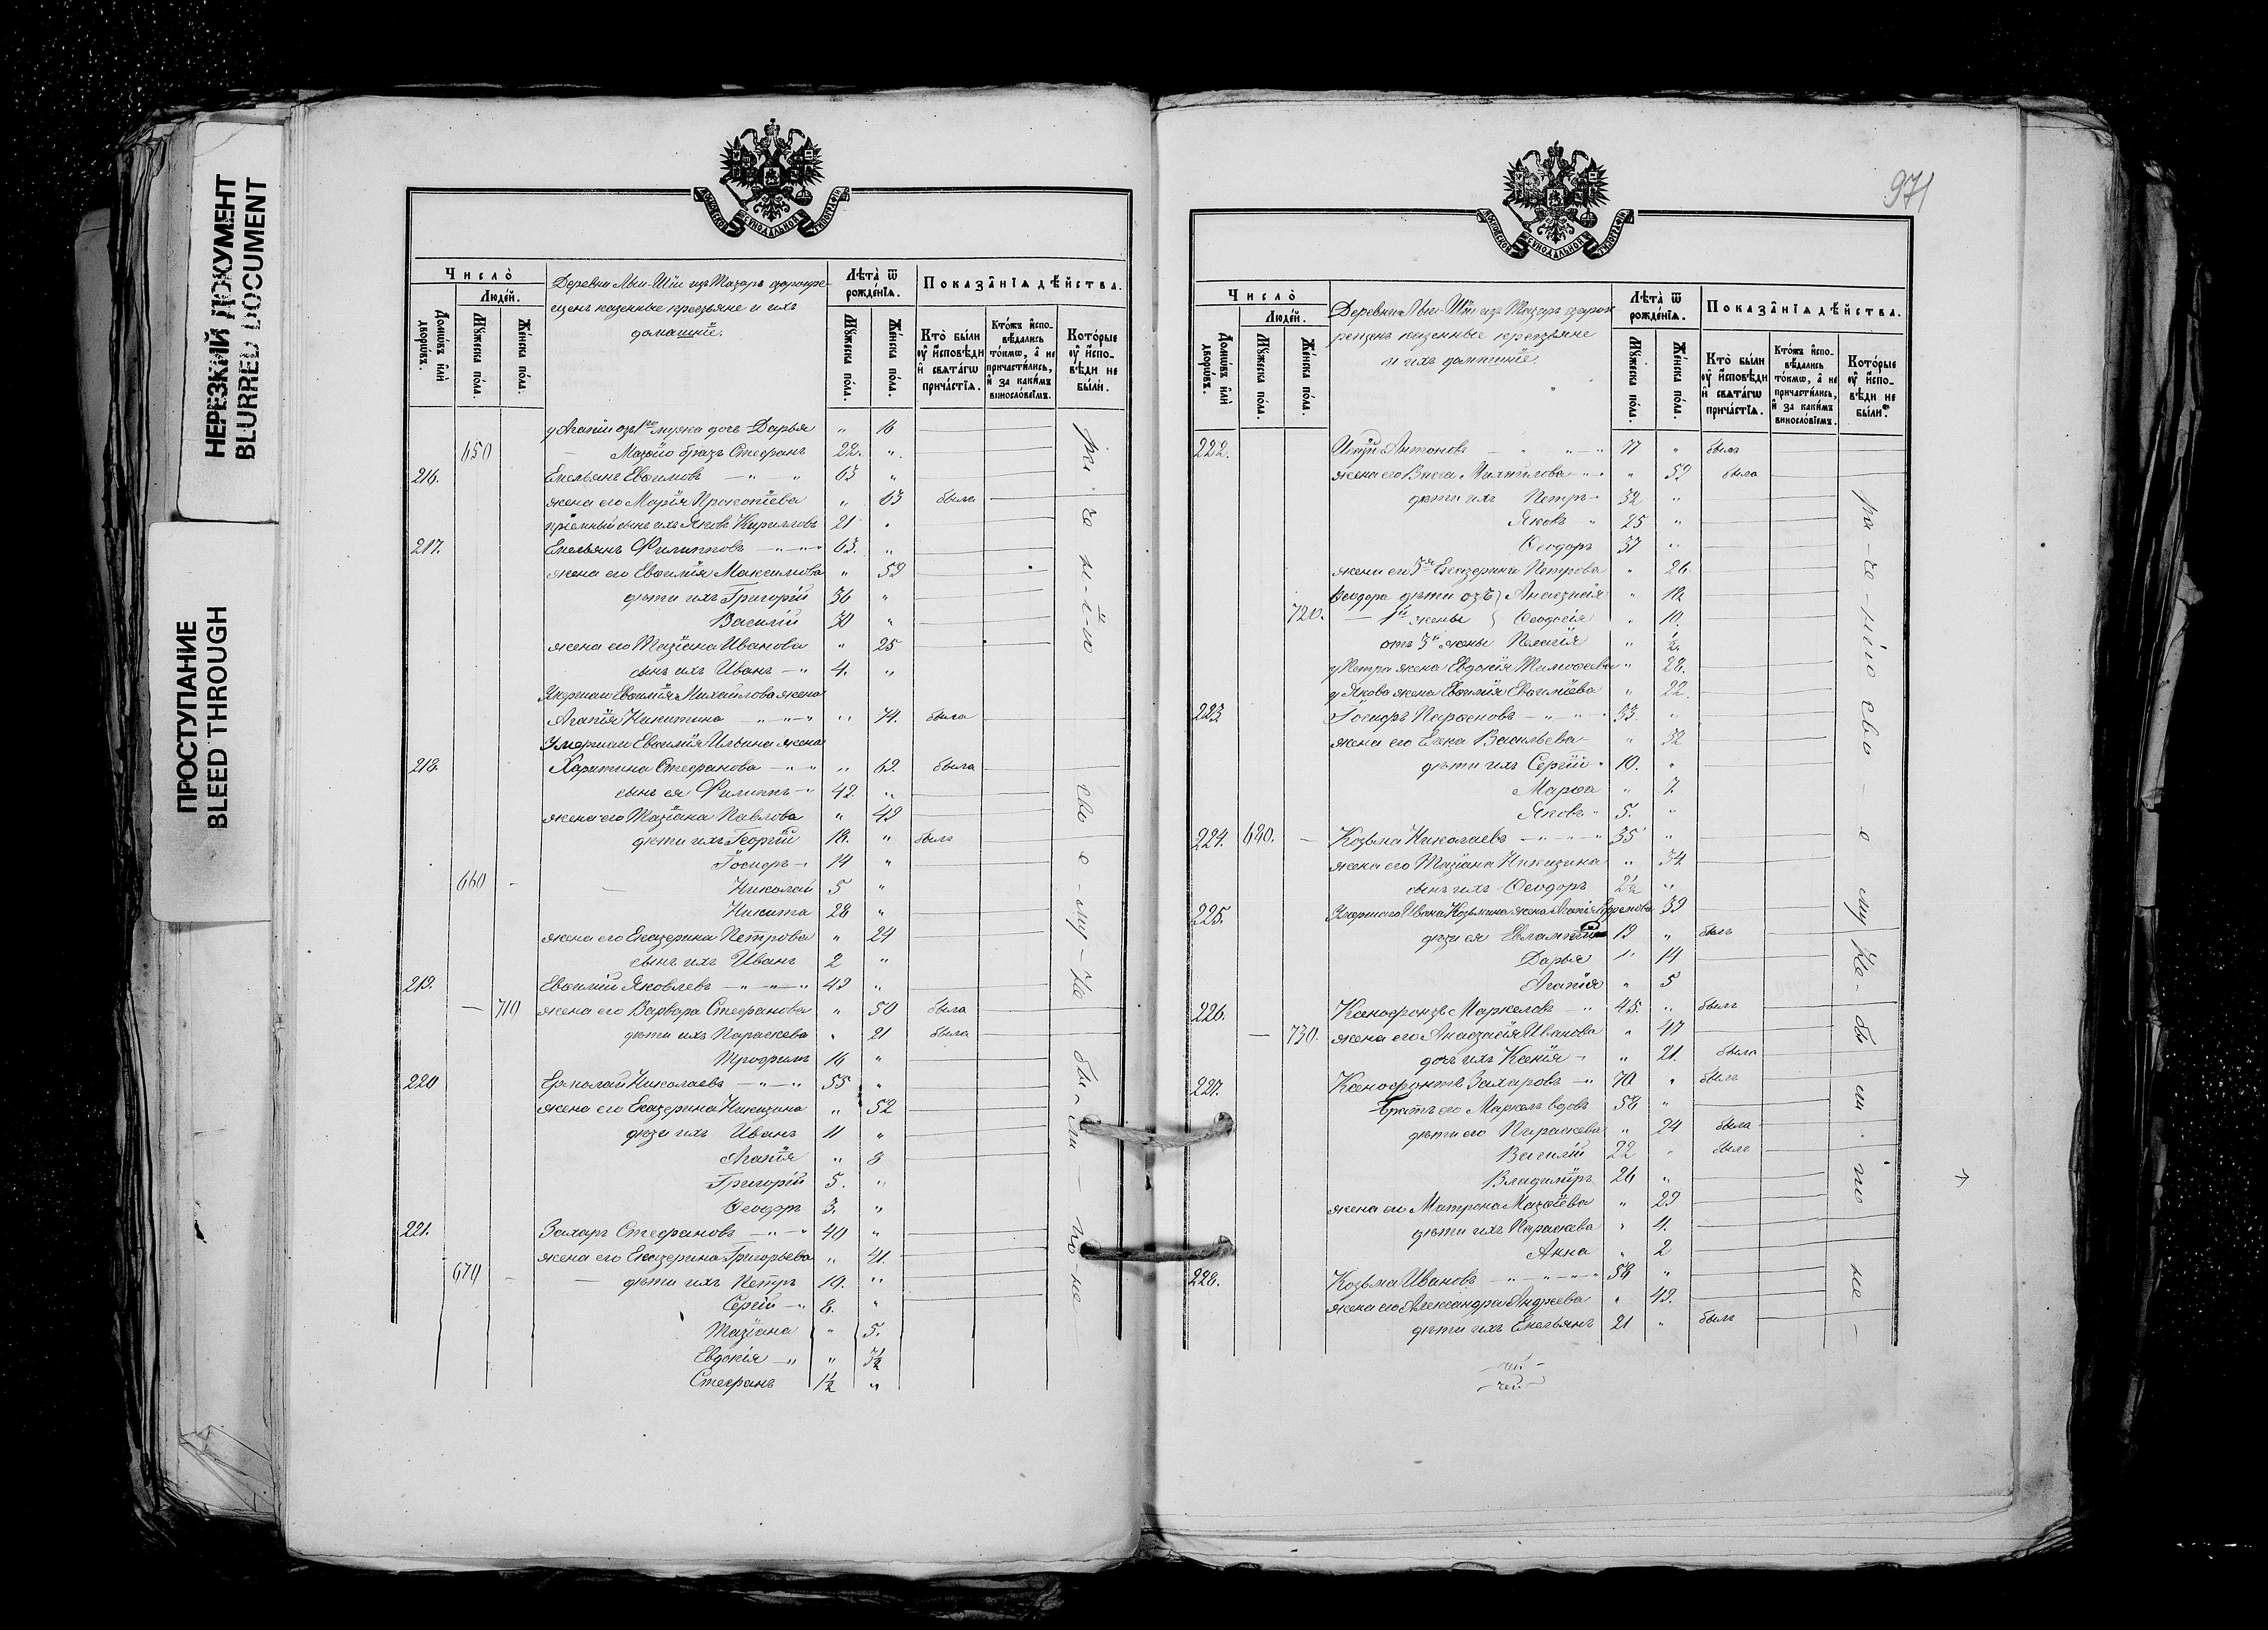 НЕРЕЗКИЙ ДОКУМЕНТ
BLURRED DOCUMENT
ПРОСТУПАНИЕ
BLEED THROUGH
МОСКОВСКОЙ СѴНОДАЛЬНОЙ ТИПОГРАФІИ
Число̀
Людéй.
Домѡ́въ и҆лѝ дворѡ́въ.
Мꙋ́жеска по́ла.
Же́нска по́ла.
Деревни
казенные крестьяне и ихъ
домашніе.
Лѣта̀ ѿ рожде́нїѧ.
Мꙋ́жеска по́ла.
Же́нска по́ла.
Показа̑нїѧ дѣ́йства.
Кто̀ бы́ли оу҆ и҆́сповѣди и҆ свѧта́гѡ прича́стїѧ.
Кто́жъ и҆спо-вѣ́дались то́кмѡ, а҆ не причасти́лись, и҆ за каки́мъ винослові́емъ.
Кото́рые оу҆ и҆́спо-вѣди не бы́ли.
у Агапіи отъ 1го мужа дочь Дарья " 16
650 — братъ Стефанъ 22. "
216. Емельянъ Евѳимовъ — " " 63 "
жена его Марія Прокопіева " 63 была
пріемный сынъ ихъ Яковъ Кирилловъ 21 "
217. Емельянъ Филипповъ — " — " 63. "
жена его Евѳимія Максимова " 59
дѣти ихъ Григорій 36 "
Василій 30 "
жена его Татіана Иванова " 25
сынъ ихъ Иванъ — " 4. "
Михайлова жена
Агапія Никитина — " — " " 74. была
Ильина жена
218. Харитина Стефанова — " " " 69. была
сынъ ея Филиппъ — " 42 "
жена его Татіана Павлова " 42
дѣти ихъ Георгій 18. " былъ
14 "
660 - — Николай 5 "
Никита 28 "
жена его Екатерина Петрова " 24
сынъ ихъ Иванъ 2 "
219. Евѳимій Яковлевъ — " — " 49 "
— 710 жена его Варвара Стефанова " 50 была
дѣти ихъ Параскева " 21 была
Трофимъ 16 "
220 Ермолай Николаевъ — " — " 55 "
жена его Екатерина Никитина " 52
дѣти ихъ Иванъ 11 "
Агапія " 8
Григорій 5. "
Ѳеодоръ 3. "
221. Захаръ Стефановъ — " — " 40 "
жена его Екатерина Григорьева " 41.
670 - — дѣти ихъ Петръ 10. "
Сергій — " 8. "
Татіана " 5.
Евдокія — " " 3½
Стефанъ 1½ "
971
МОСКОВСКОЙ СѴНОДАЛЬНОЙ ТИПОГРАФІИ
Число̀
Людéй.
Домѡ́въ и҆лѝ дворѡ́въ.
Мꙋ́жеска по́ла.
Же́нска по́ла.
Деревни
казенные крестьяне
и ихъ домашніе.
Лѣта̀ ѿ рожде́нїѧ.
Мꙋ́жеска по́ла.
Же́нска по́ла.
Показа̑нїѧ дѣ́йства.
Кто̀ бы́ли оу҆ и҆́сповѣди и҆ свѧта́гѡ прича́стїѧ.
Кто́жъ и҆спо-вѣ́дались то́кмѡ, а҆ не причасти́лись, и҆ за каки́мъ винослові́емъ.
Кото́рые оу҆ и҆́спо-вѣди не бы́ли.
222. Антоновъ — " " — " 77 " былъ
жена его Васса Михайлова — " " 59 была
дѣти ихъ Петръ " 32 "
Яковъ " 25 "
Ѳеодоръ 37 "
жена его Екатерина Петрова " 26.
Ѳеодора дѣти отъ Анастасія " 12
720. — 1й жены Ѳеодосія " 10.
отъ 3й жены Пелагія " ½
у Петра жена Евдокія Тимоѳеева " 28.
у Якова жена Евѳимія Евѳиміева " 22.
223. — " " " 33. "
жена его Елена Васильева " 32
дѣти ихъ Сергій " 10. "
Марѳа " 7.
Яковъ " 5. "
224. 680. — Козьма Николаевъ — " " — " 35 "
жена его Татіана Никитина " 34
сынъ ихъ Ѳеодоръ 2½ "
225. Умершаго Ивана Козьмина жена Агапія Ефремова 39
дѣти ея Евлампій 19 " былъ
Дарья " 14
Агапія " 5
226. Ксенофонтъ Маркеловъ " 45. " былъ
— 730. жена его Анастасія Иванова " 47
дочь ихъ Ксенія — " " 21. была
227. Ксенофонтъ Захаровъ — " 70 " былъ
братъ его Маркелъ вдовъ 58 "
дѣти его Параскева " 24 была
Василій 22 " былъ
Владиміръ 26 "
жена его Матрона " 29
дѣти ихъ Параскева " 4.
Анна " 2
228. Козьма Ивановъ — " — " — " 58 "
жена его Александра Андреева " 49.
дѣти ихъ Емельянъ 21 " былъ